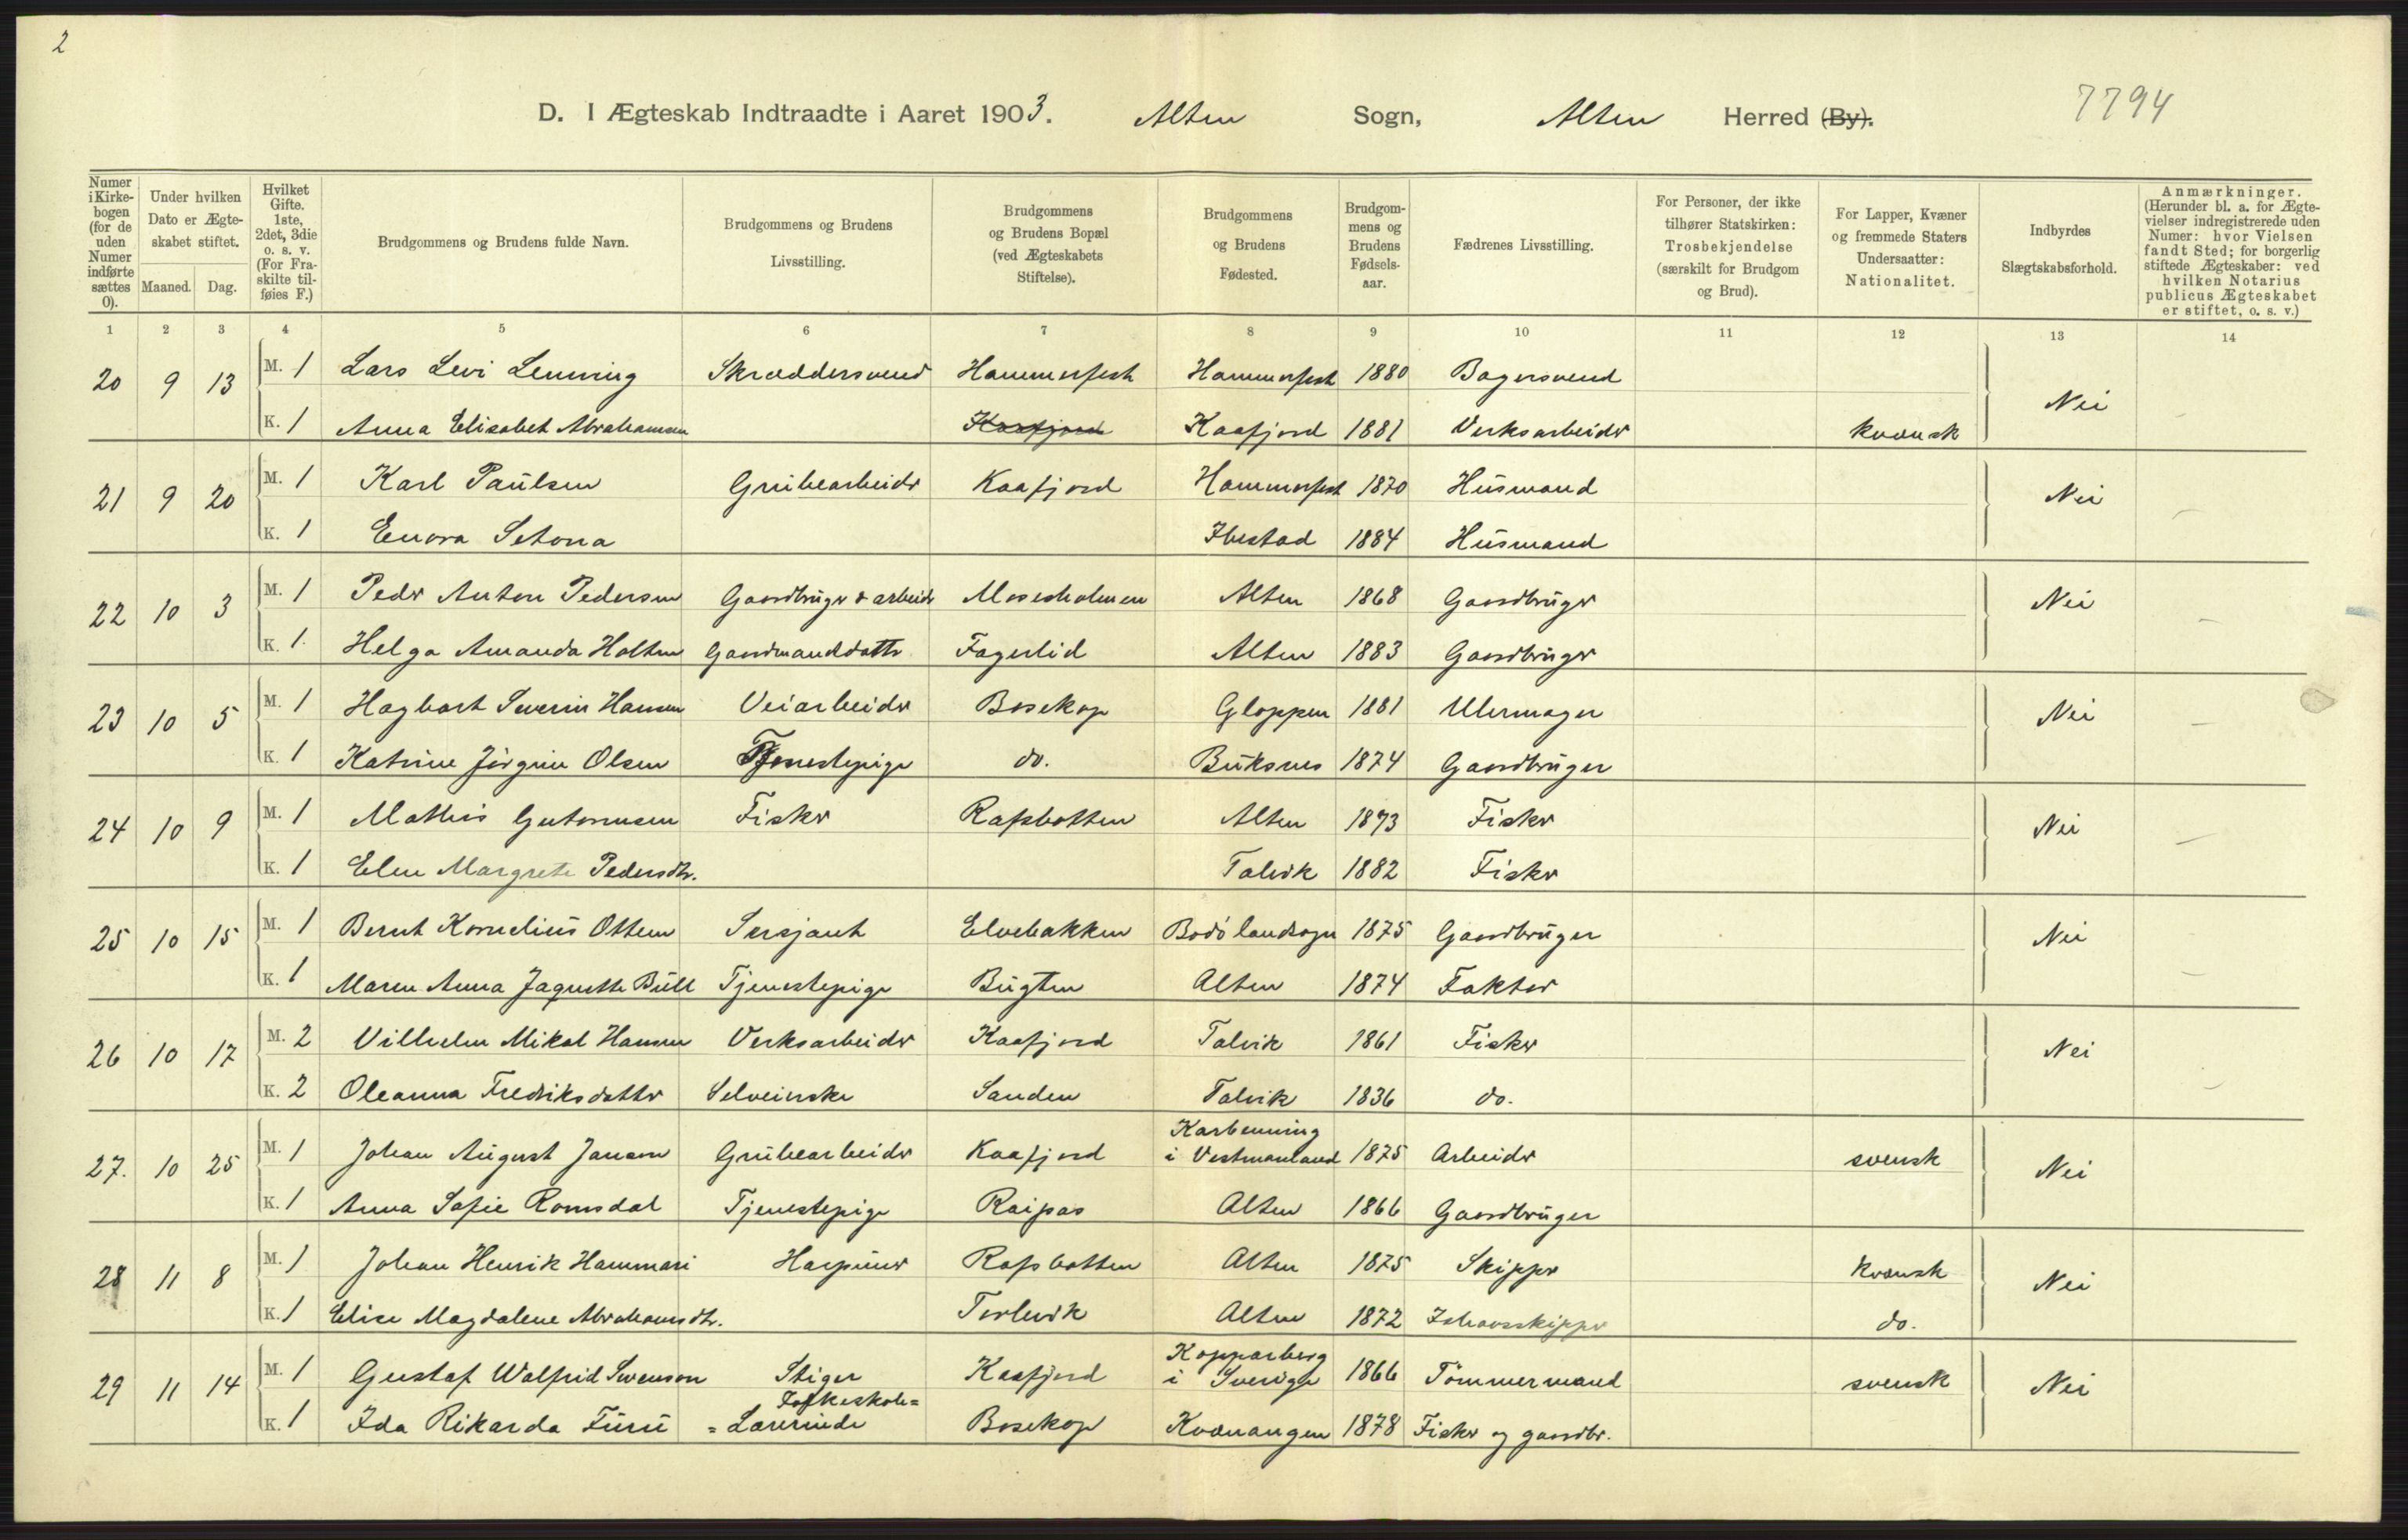 2
D. I Ægteskab Indtraadte i Aaret 1903. Alten Sogn, Alten Herred (By). 7794
Numer i Kirkebogen (for de uden Numer indførte sættes 0).
Under hvilken Dato er Ægteskabet stiftet.
Maaned. Dag.
Hvilket Gifte. 1ste, 2det, 3die o. s. v. (For Fraskilte tilføies F.)
Brudgommens og Brudens fulde Navn.
Brudgommens og Brudens Livsstilling.
Brudgommens og Brudens Bopæl (ved Ægteskabets Stiftelse).
Brudgommens og Brudens Fødested.
Brudgommens og Brudens Fødselsaar.
Fædrenes Livsstilling.
For Personer, der ikke tilhører Statskirken: Trosbekjendelse (særskilt for Brudgom og Brud).
For Lapper, Kvæner og fremmede Staters Undersaatter: Nationalitet.
Indbyrdes Slægtskabsforhold.
Anmærkninger. (Herunder bl. a. for Ægtevielser indregistrerede uden Numer: hvor Vielsen fandt Sted; for borgerlig stiftede Ægteskaber: ved hvilken Notarius publicus Ægteskabet er stiftet, o. s. v.)
1 2 3 4 5 6 7 8 9 10 11 12 13 14
20 9 13 M. 1 Lars Levi Lemming Skræddersvend Hammerfest Hammerfest 1880 Bagersvend Nei
K. 1 Anna Elisabet Abrahamsen Kaafjord Kaafjord 1881 Verksarbeider kvænsk
21 9 20 M. 1 Karl Paulsen Grubearbeider Kaafjord Hammerfest 1870 Husmand Nei
K. 1 Enora Setona Ibestad 1884 Husmand
22 10 3 M. 1 Peder Anton Pedersen Gaardbruger & arbeider Mosesholmen Alten 1868 Gaardbruger Nei
K. 1 Helga Amanda Holten Gaardmanddatter Fagerlid Alten 1883 Gaardbruger
23 10 5 M. 1 Hagbart Severin Hansen Veiarbeider Bosekop Gloppen 1881 Uhrmager Nei
K. 1 Katrine Jørgine Olsen Tjenestepige do. Buksnes 1874 Gaardbruger
24 10 9 M. 1 Mathis Gutormsen Fisker Rafsbotten Alten 1873 Fisker Nei
K. 1 Elen Margrete Pedersdtr. Talvik 1882 Fisker
25 10 15 M. 1 Bernt Kornelius Ottem Sersjant Elvebakken Bodø landsogn 1875 Gaardbruger Nei
K. 1 Maren Anna Jagusette Bull Tjenestepige Bugten Alten 1874 Faktor
26 10 17 M. 2 Vilhelm Mikal Hansen Verksarbeider Kaafjord Talvik 1861 Fisker Nei
K. 2 Oleanna Fredriksdatter Selveierske Sanden Talvik 1836 do.
27. 10 25 M. 1 Johan August Janson Grubearbeider Kaafjord Karbenning i Vestmanland 1875 Arbeider svensk Nei
K. 1 Anna Sofie Romsdal Tjenestepige Raipas Alten 1866 Gaardbruger
28 11 8 M. 1 Johan Henrik Hammari Harpuner Rafsbotten Alten 1875 Skipper kvænsk Nei
K. 1 Elise Magdalene Abrahamsdtr. Torlevik Alten 1872 Ishavsskipper do.
29 11 14 M. 1 Gustaf Walfrid Svenson Stiger Kaafjord Kopparberg i Sverige 1866 Tømmermand svensk Nei
K. 1 Ida Rikarda Furu Folkeskole= =Lærerinde Bosekop Kvænangen 1878 Fisker og gaardbr.